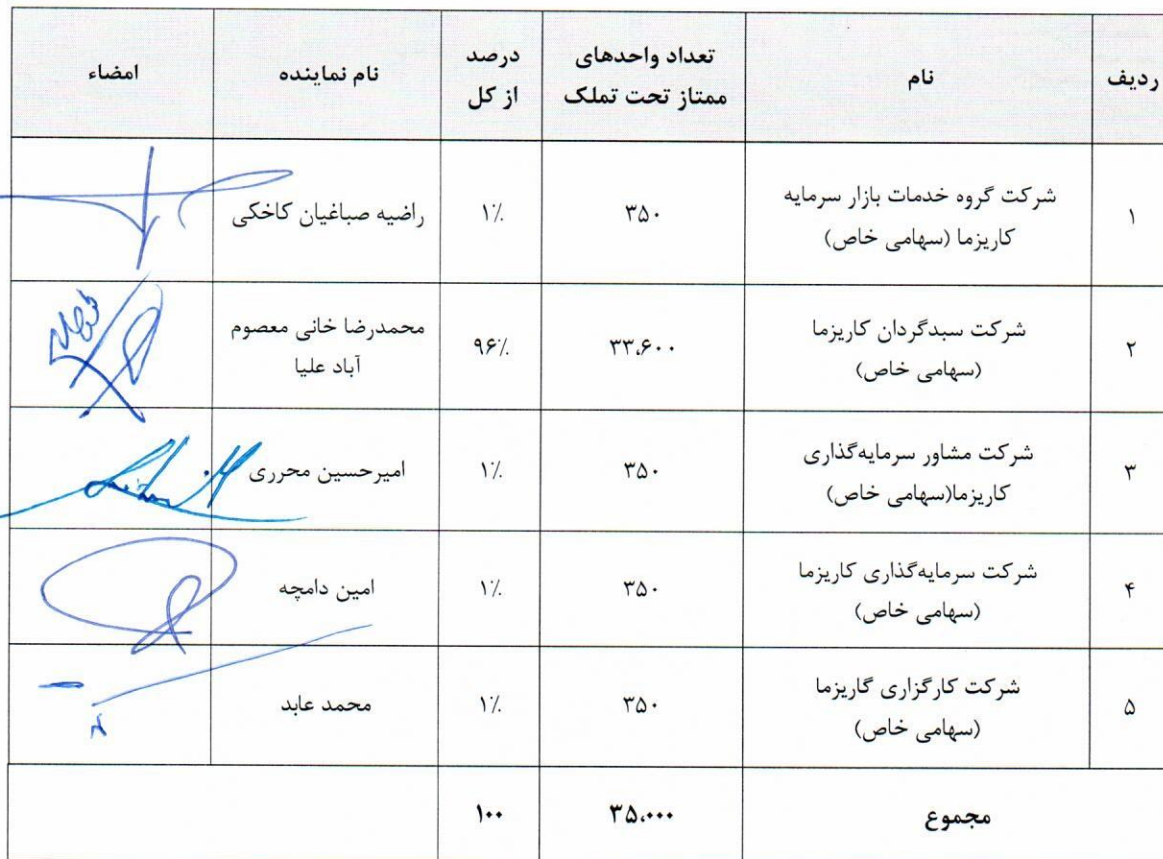 ردیف
نام
تعداد واحدهای
ممتاز تحت تملک
درصد
از کل
نام نماینده
امضاء
۱
شرکت گروه خدمات بازار سرمایه
کاریزما (سهامی خاص)
۳۵۰
۱٪
راضیه صباغیان کاخکی
۲
شرکت سبدگردان کاریزما
(سهامی خاص)
۳۳،۶۰۰
۹۶٪
محمدرضا خانی معصوم
آباد علیا
۳
شرکت مشاور سرمایه‌گذاری
کاریزما(سهامی خاص)
۳۵۰
۱٪
امیرحسین محرری
۴
شرکت سرمایه‌گذاری کاریزما
(سهامی خاص)
۳۵۰
۱٪
امین دامچه
۵
شرکت کارگزاری گاریزما
(سهامی خاص)
۳۵۰
۱٪
محمد عابد
مجموع
۳۵،۰۰۰
۱۰۰